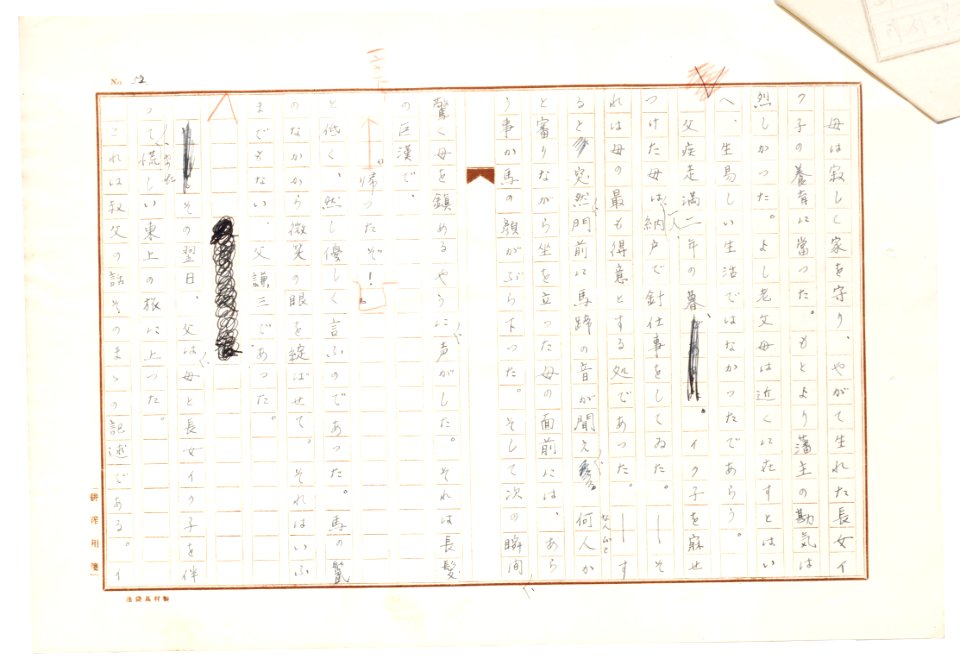 No. 12
母は寂しく家を守り、やがて生れた長女イ
ク子の養育に當つた。もとより藩主の勘気は
烈しかつた。よし老父母は近くに在すとはい
へ、生易しい生活ではなかつたであらう。
父疾走満二年の暮。イク子を寐せ
つけた母は一人納戸で針仕事をしてゐた。――そ
れは母の最も得意とする処であつた。――す
ると突然門前に馬蹄の音が聞え、何人か
なんぴと
と審りながら坐を立つた母の面前には、あら
う事か馬の顔がぶら下つた。そして次の瞬間
驚く母を鎮めるやうに声がした。それは長髪
の巨漢で、
"帰つたぞ!"
と低く、然し優しく言ふのであつた。馬の鬣
のなかから微笑の眼を綻ばせて。それはいふ
までもない、父謙三であつた。
その翌日、父は母と長女イク子を伴
つて慌しい東上の旅に上つた。
これは叔父の話そのまゝの記述である。イ